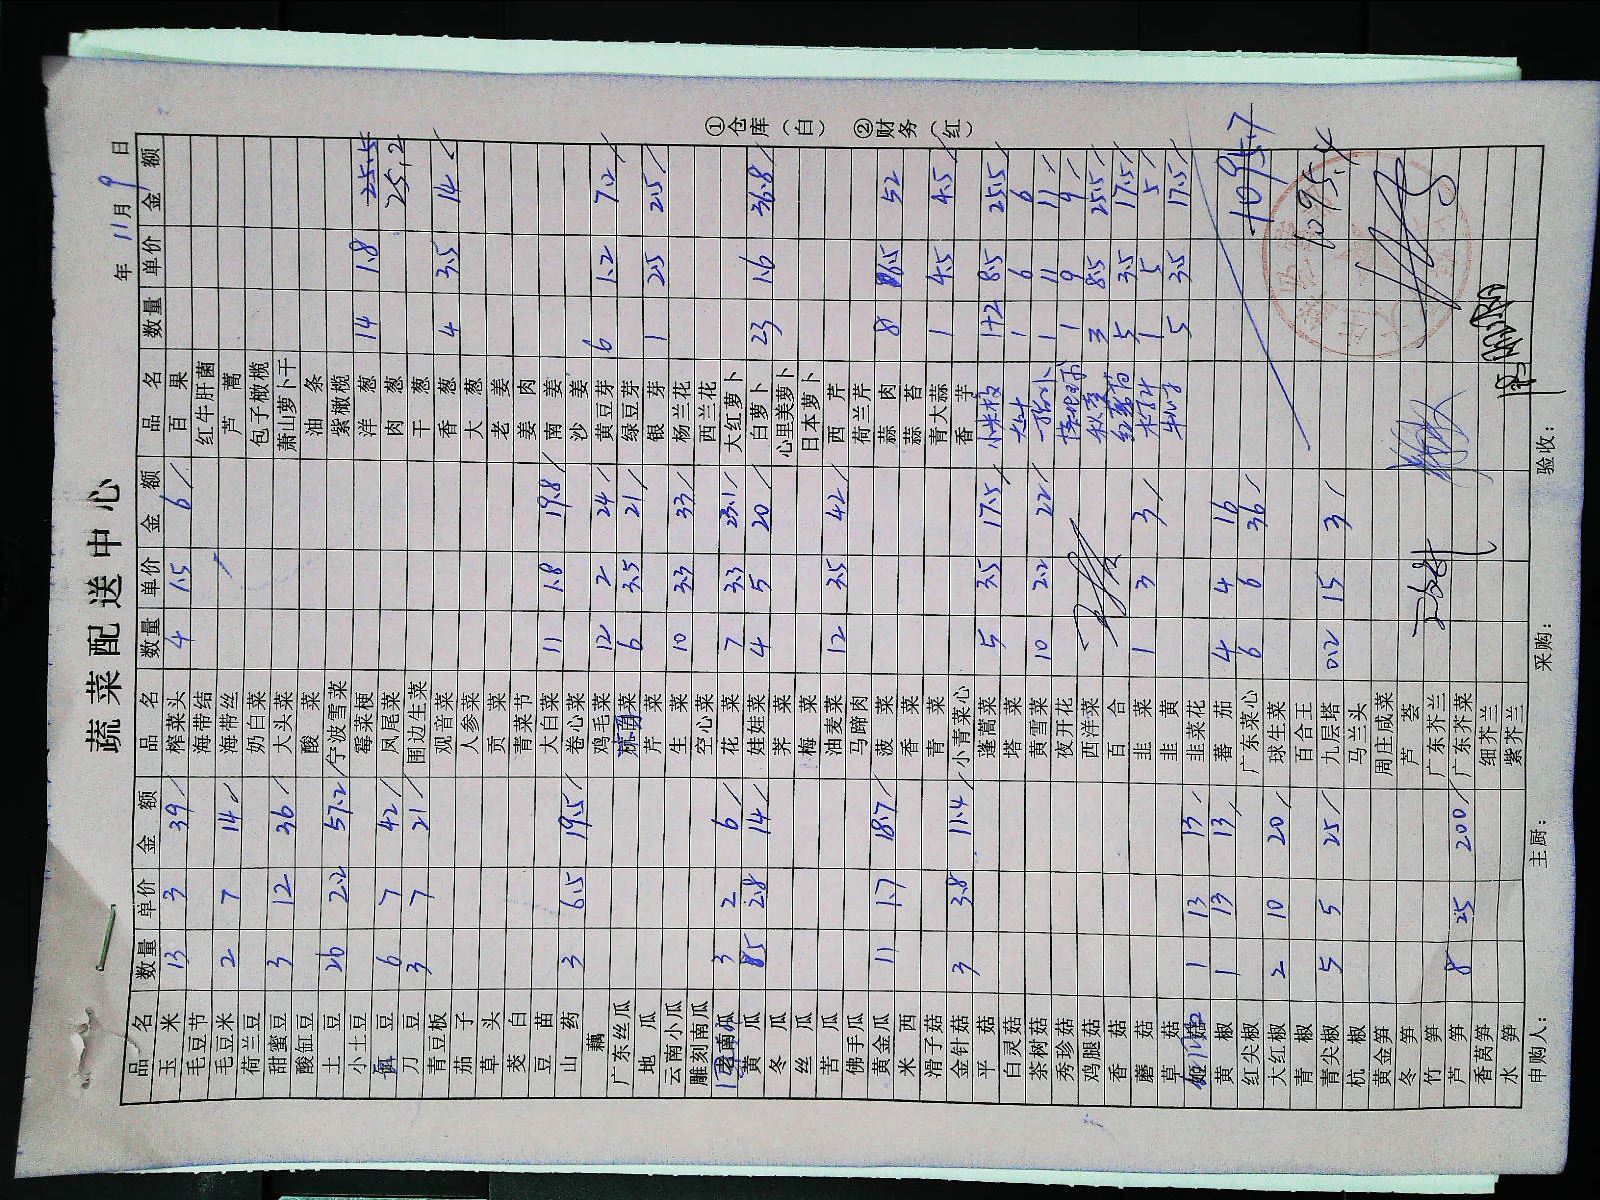 蔬菜配送中心
年 11月 9 日
品名 数量 单价 金额 品名 数量 单价 金额 品名 数量 单价 金额
玉米 13 3 39 榨菜头 4 1.5 6 百果
毛豆节 海带结 红牛肝菌
毛豆米 2 7 14 海带丝 芦蒿
荷兰豆 奶白菜 包子橄榄
甜蜜豆 3 12 36 大头菜 萧山萝卜干
酸缸豆 酸菜 油条
土豆 26 2.2 57.2 宁波雪菜 紫橄榄
小土豆 霉菜梗 洋葱 14 1.8 25.5
豆 6 7 42 凤尾菜 肉葱 25.2
刀豆 3 7 21 围边生菜 干葱
青豆板 观音菜 香葱 4 3.5 14
茄子 人参菜 大葱
草头 贡菜 老姜
茭白 青菜节 姜肉
豆苗 大白菜 11 1.8 19.8 南姜
山药 3 6.5 19.5 卷心菜 沙姜
藕 鸡毛菜 12 2 24 黄豆芽 6 1.2 7.2
广东丝瓜 菜 6 3.5 21 绿豆芽
地瓜 芹菜 银芽 1 2.5 2.5
云南小瓜 生菜 10 3.3 33 杨兰花
雕刻南瓜 空心菜 西兰花
老南瓜 3 2 6 花菜 7 3.3 23.1 大红萝卜
黄瓜 5 2.8 14 娃娃菜 4 5 20 白萝卜 23 1.6 36.8
冬瓜 荠菜 心里美萝卜
丝瓜 梅菜 日本萝卜
苦瓜 油麦菜 12 3.5 42 西芹
佛手瓜 马蹄肉 荷兰芹
黄金瓜 11 1.7 18.7 菠菜 蒜肉 8 6.5 52
米西 香菜 蒜苔
滑子菇 青菜 青大蒜 1 4.5 4.5
金针菇 3 3.8 11.4 小青菜心 香芋
平菇 蓬蒿菜 5 3.5 17.5 小米椒 1+2 8.5 25.5
白灵菇 塔菜 1 6 6
茶树菇 黄雪菜 10 2.2 22 1 11 11
秀珍菇 夜开花 1 9 9
鸡腿菇 西洋菜 3 8.5 25.5
香菇 百合 5 3.5 17.5
蘑菇 韭菜 1 3 3 1 5 5
草菇 韭黄 5 3.5 17.5
菇 1 13 13 韭菜花
黄椒 1 13 13 蕃茄 4 4 16
红尖椒 广东菜心 6 6 36 1095.7
大红椒 2 10 20 球生菜
青椒 百合王 1095.4
青尖椒 5 5 25 九层塔 0.2 15 3
杭椒 马兰头
黄金笋 周庄咸菜
冬笋 芦荟
竹笋 广东芥兰
芦笋 8 25 200 广东芥菜
香莴笋 细芥兰
水笋 紫芥兰
申购人： 主厨： 采购： 验收：
①仓库（白） ②财务（红）